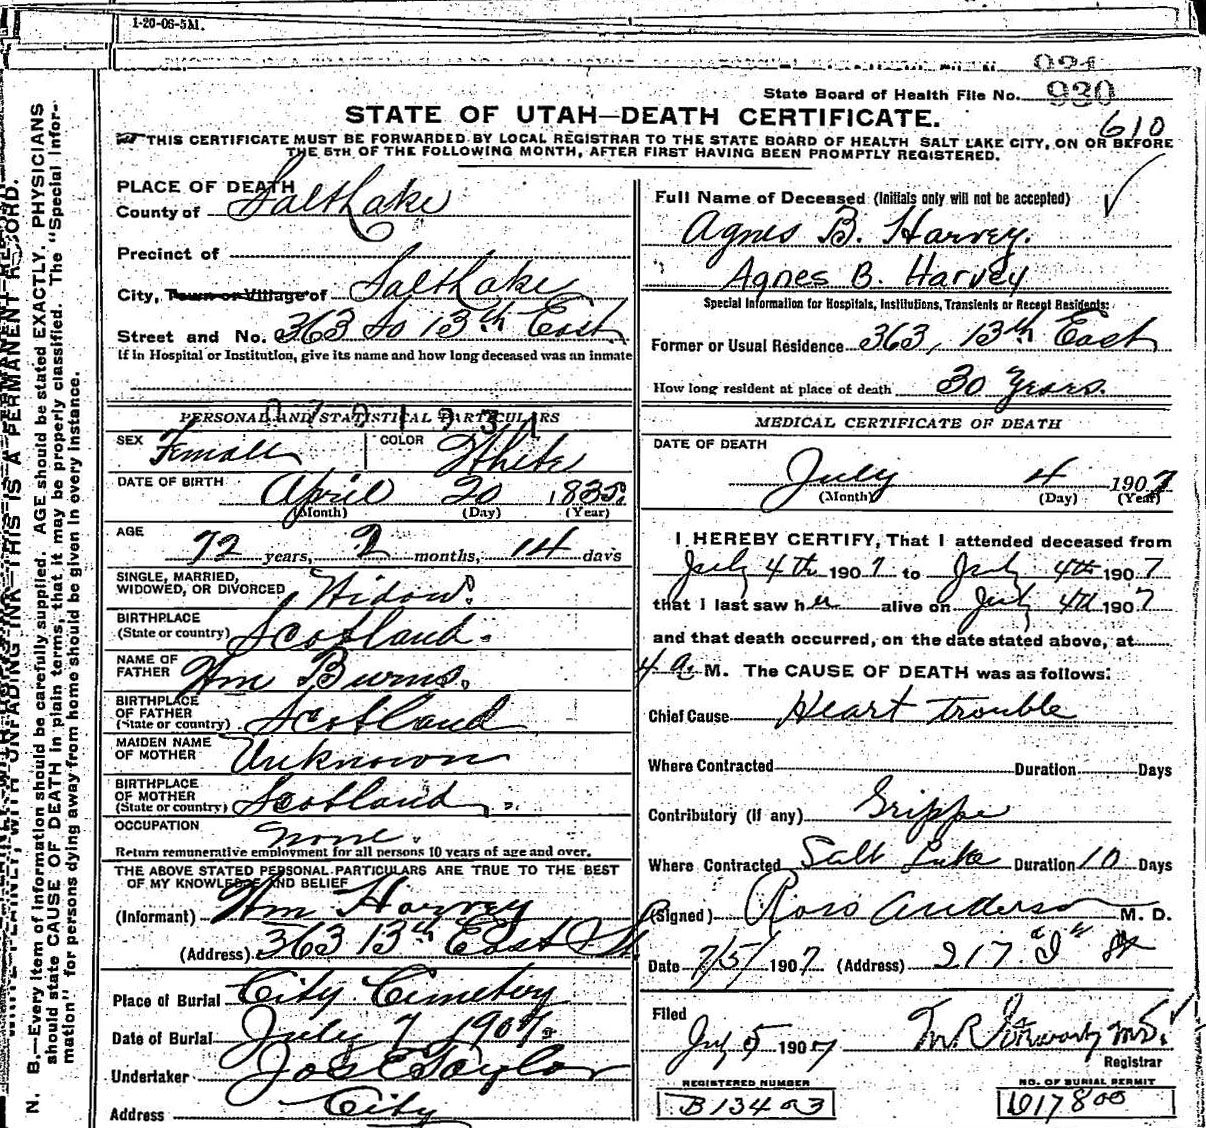 1-20-06-5M.
921
State Board of Health File No. 930
STATE OF UTAH—DEATH CERTIFICATE.
610
THIS CERTIFICATE MUST BE FORWARDED BY LOCAL REGISTRAR TO THE STATE BOARD OF HEALTH SALT LAKE CITY, ON OR BEFORE
THE 5TH OF THE FOLLOWING MONTH, AFTER FIRST HAVING BEEN PROMPTLY REGISTERED.
PLACE OF DEATH
County of Salt Lake
Precinct of
City, Town or Village of Salt Lake
Street and No. 363 So 13th East
If in Hospital or Institution, give its name and how long deceased was an inmate
PERSONAL AND STATISTICAL PARTICULARS
SEX Female COLOR White
DATE OF BIRTH April 20 1835
(Month) (Day) (Year)
AGE 72 years, 2 months, 14 days
SINGLE, MARRIED,
WIDOWED, OR DIVORCED Widow.
BIRTHPLACE
(State or country) Scotland.
NAME OF
FATHER Wm Burns.
BIRTHPLACE
OF FATHER
(State or country) Scotland
MAIDEN NAME
OF MOTHER Unknown
BIRTHPLACE
OF MOTHER
(State or country) Scotland
OCCUPATION none.
Return remunerative employment for all persons 10 years of age and over.
THE ABOVE STATED PERSONAL PARTICULARS ARE TRUE TO THE BEST
OF MY KNOWLEDGE AND BELIEF
(Informant) Wm Harvey
(Address) 363 13th East St.
Place of Burial City Cemetery
Date of Burial July 7 1907.
Undertaker Jos E Taylor
Address City
Full Name of Deceased (Initials only will not be accepted)
Agnes B. Harvey.
Agnes B. Harvey
Special Information for Hospitals, Institutions, Transients or Recent Residents:
Former or Usual Residence 363, 13th East
How long resident at place of death 30 Years.
MEDICAL CERTIFICATE OF DEATH
DATE OF DEATH
July 4 1907
(Month) (Day) (Year)
I HEREBY CERTIFY, That I attended deceased from
July 4th 1907 to July 4th 1907
that I last saw her alive on July 4th 1907
and that death occurred, on the date stated above, at
4 a M. The CAUSE OF DEATH was as follows:
Chief Cause Heart trouble
Where Contracted Duration Days
Contributory (if any) Grippe
Where Contracted Salt Lake Duration 10 Days
(Signed) Ross Anderson M. D.
Date 7/5/ 1907 (Address) 217 "I" St
Filed
July 5 1907
Registrar
REGISTERED NUMBER
B13403
NO. OF BURIAL PERMIT
N. B.—Every item of information should be carefully supplied. AGE should be stated EXACTLY. PHYSICIANS
should state CAUSE OF DEATH in plain terms, that it may be properly classified. The "Special Infor-
mation" for persons dying away from home should be given in every instance.
UNFADING INK—THIS IS A PERMANENT RECORD.